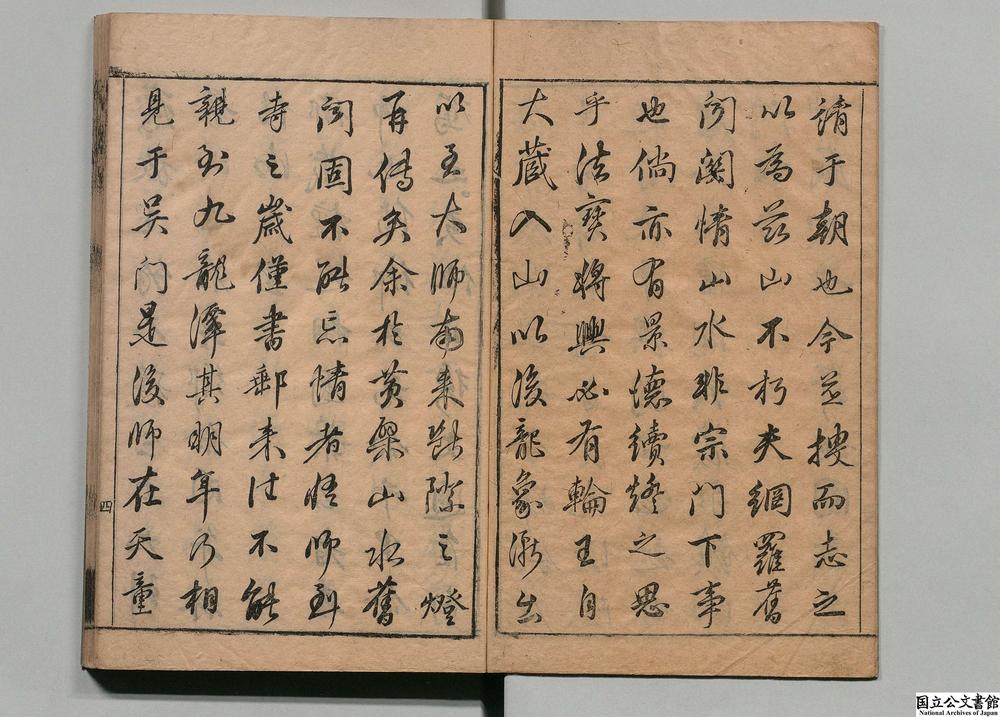 請于朝也今並搜而志之
以為茲山不朽夫網羅舊
聞關情山水非宗門下事
也倘亦有景德續燈之思
乎法寶將興必有輪王自
大藏入山以後龍象漸出
以至大師南來斷際之燈
再傳矣余於黃檗山水舊
聞固不能忘情者悟師到
寺之歲僅書郵來往不能
親到九龍潭其明年乃相
見于吳門是後師在天童
四
国立公文書館
National Archives of Japan